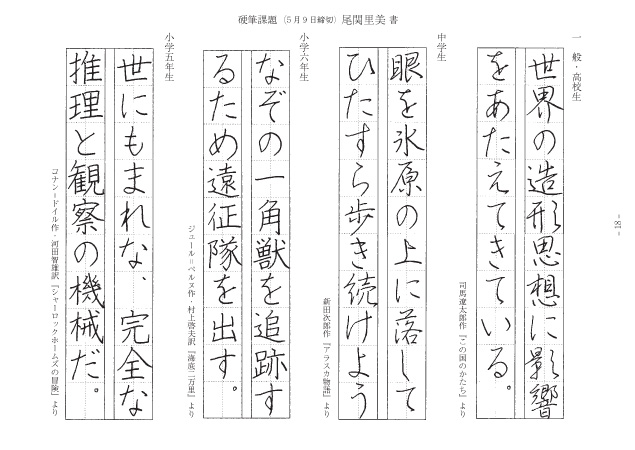 硬筆課題（5月9日締切）尾関里美 書
一般・高校生
世界の造形思想に影響
をあたえてきている。
司馬遼太郎作『この国のかたち』より
中学生
眼を氷原の上に落して
ひたすら歩き続けよう
新田次郎作『アラスカ物語』より
小学六年生
なぞの一角獣を追跡す
るため遠征隊を出す。
ジュール＝ベルヌ作・村上啓夫訳『海底二万里』より
小学五年生
世にもまれな、完全な
推理と観察の機械だ。
コナン＝ドイル作・河田智雄訳『シャーロックホームズの冒険』より